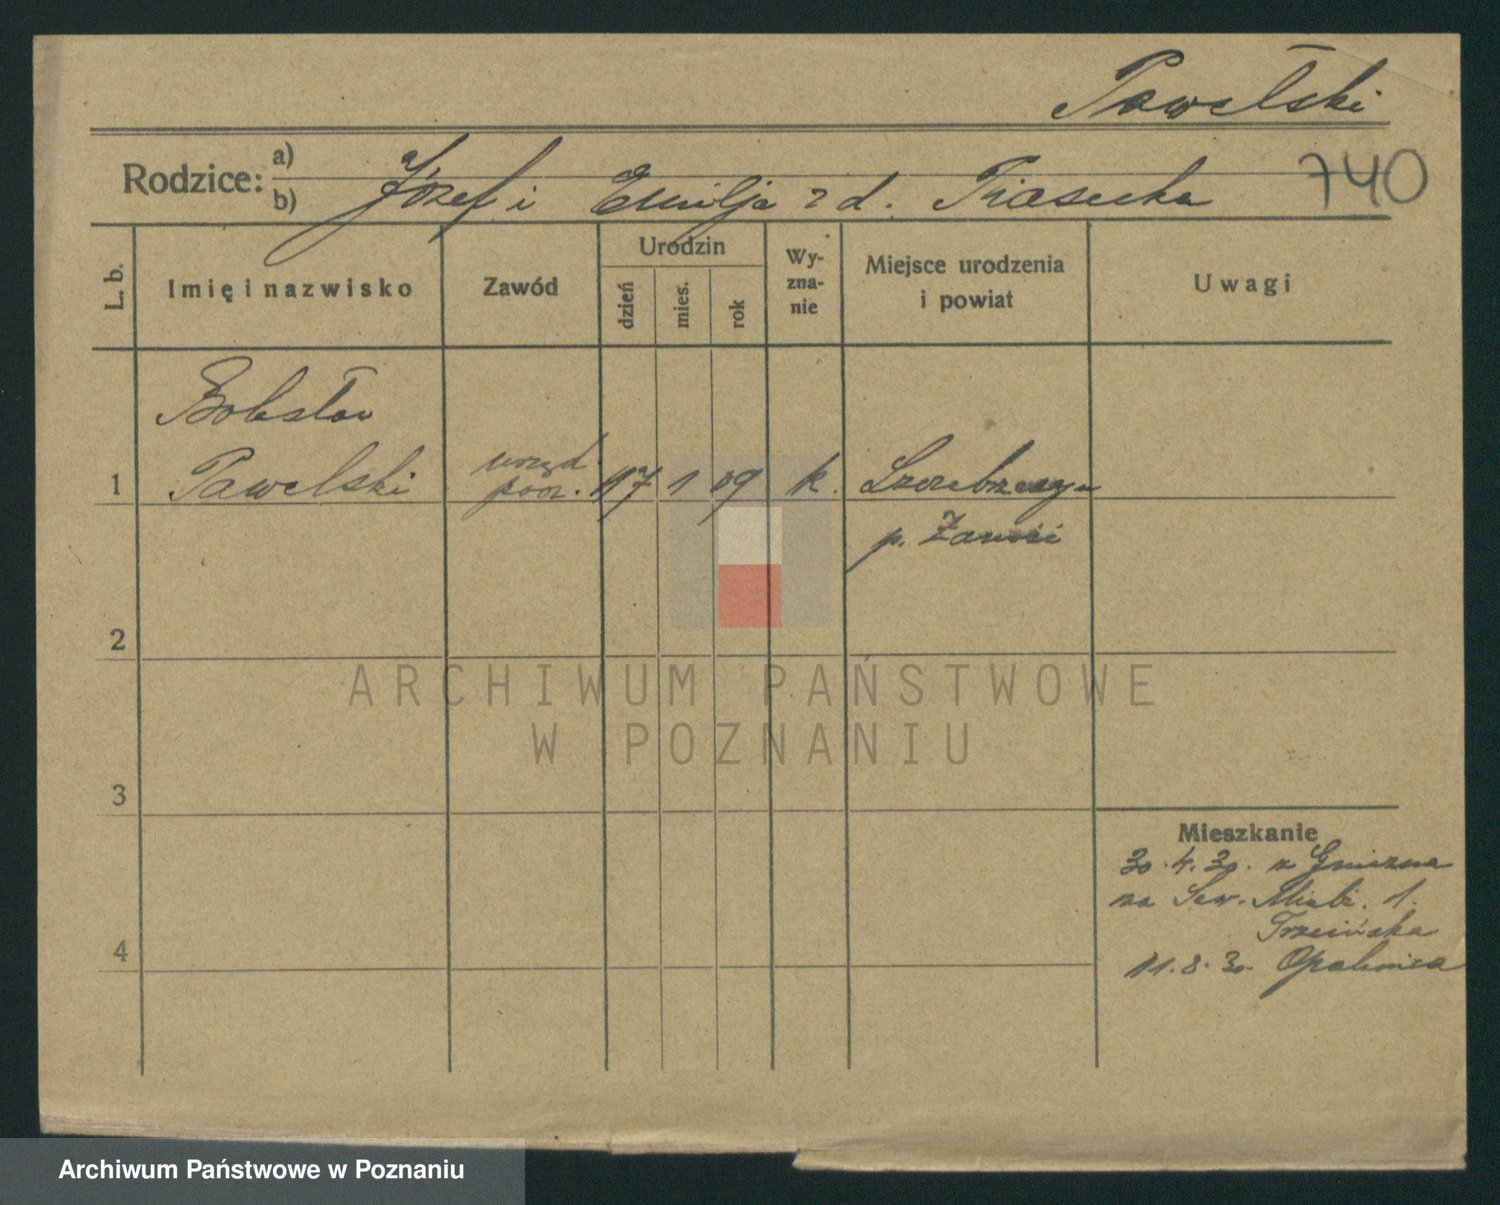 Pawelski
Rodzice: a)
b) Józef i Emilja z d. Piasecka
740
L. b.
Imię i nazwisko
Zawód
Urodzin
dzień
mies.
rok
Wy-
zna-
nie
Miejsce urodzenia
i powiat
Uwagi
Bolesław
1 Pawelski urzęd. pocz. 17 1 09 k. Szczebrzeszyn
p. Zamość
2
3
4
Mieszkanie
30.4.30. z Gniezna
na Sew. Mielż. 1.
Trzcińska
11.8.30. Opalenica
ARCHIWUM PAŃSTWOWE
W POZNANIU
Archiwum Państwowe w Poznaniu